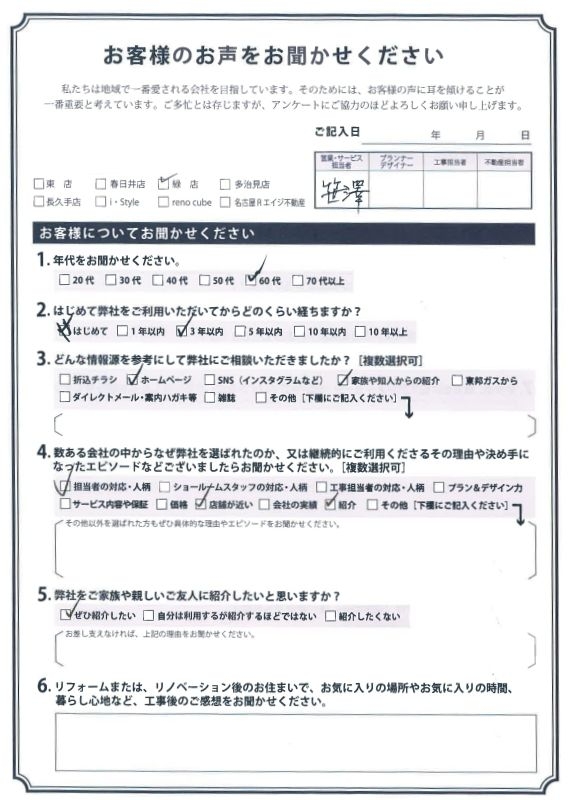 お客様のお声をお聞かせください
私たちは地域で一番愛される会社を目指しています。そのためには、お客様の声に耳を傾けることが
一番重要と考えています。ご多忙とは存じますが、アンケートにご協力のほどよろしくお願い申し上げます。
ご記入日 年 月 日
営業・サービス担当者 プランナーデザイナー 工事担当者 不動産担当者
笹澤
□東 店 □春日井店 ☑緑 店 □多治見店
□長久手店 □i・Style □reno cube □名古屋Rエイジ不動産
お客様についてお聞かせください
1. 年代をお聞かせください。
□20代 □30代 □40代 □50代 ☑60代 □70代以上
2. はじめて弊社をご利用いただいてからどのくらい経ちますか？
□はじめて □1年以内 ☑3年以内 □5年以内 □10年以内 □10年以上
3. どんな情報源を参考にして弊社にご相談いただきましたか？［複数選択可］
□折込チラシ ☑ホームページ □SNS（インスタグラムなど） ☑家族や知人からの紹介 □東邦ガスから
□ダイレクトメール・案内ハガキ等 □雑誌 □その他［下欄にご記入ください］
4. 数ある会社の中からなぜ弊社を選ばれたのか、又は継続的にご利用くださるその理由や決め手に
なったエピソードなどございましたらお聞かせください。［複数選択可］
☑担当者の対応・人柄 □ショールームスタッフの対応・人柄 □工事担当者の対応・人柄 □プラン＆デザイン力
□サービス内容や保証 □価格 ☑店舗が近い □会社の実績 ☑紹介 □その他［下欄にご記入ください］
その他以外を選ばれた方もぜひ具体的な理由やエピソードをお聞かせください。
5. 弊社をご家族や親しいご友人に紹介したいと思いますか？
☑ぜひ紹介したい □自分は利用するが紹介するほどではない □紹介したくない
お差し支えなければ、上記の理由をお聞かせください。
6. リフォームまたは、リノベーション後のお住まいで、お気に入りの場所やお気に入りの時間、
暮らし心地など、工事後のご感想をお聞かせください。